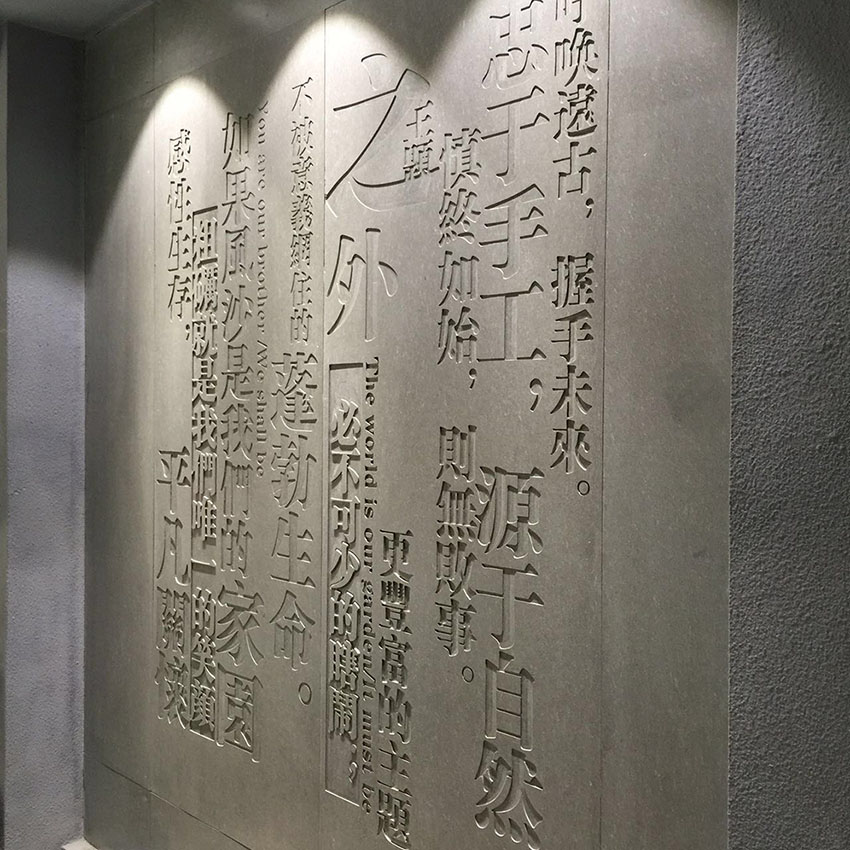 呼唤遠古，握手未來。
忠于手工，源于自然
慎終如始，則無敗事。
主題
更豐富的主題
之外
The world is our garden/It must be
必不可少的瞎鬧，
不被意義網住的蓬勃生命。
You are our brother/We shall be
如果風沙是我們的家園
粗礪就是我們唯一的笑顏
感性生存，平凡關懷